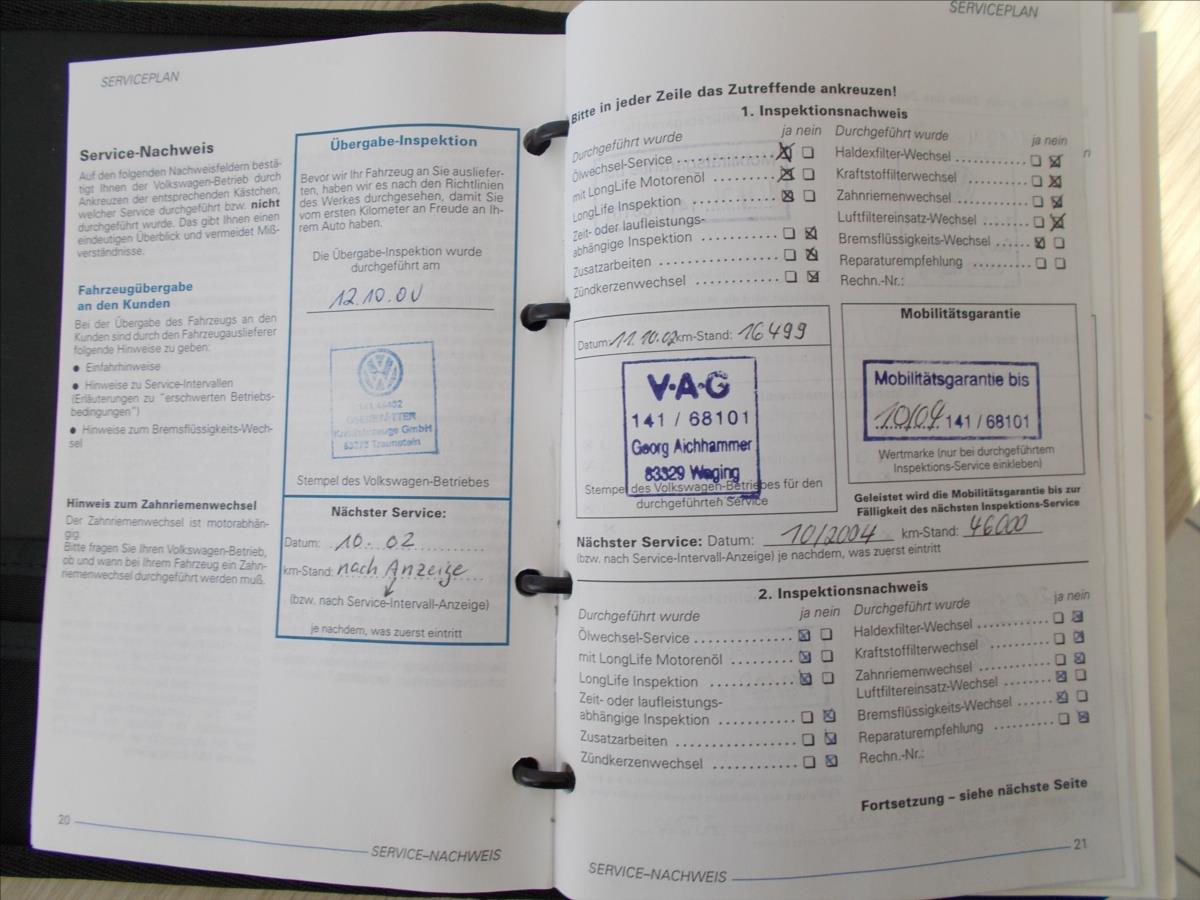 SERVICEPLAN
Service-Nachweis
Auf den folgenden Nachweisfeldern bestä-
tigt Ihnen der Volkswagen-Betrieb durch
Ankreuzen der entsprechenden Kästchen,
welcher Service durchgeführt bzw. nicht
durchgeführt wurde. Das gibt Ihnen einen
eindeutigen Überblick und vermeidet Miß-
verständnisse.
Fahrzeugübergabe
an den Kunden
Bei der Übergabe des Fahrzeugs an den
Kunden sind durch den Fahrzeugauslieferer
folgende Hinweise zu geben:
● Einfahrhinweise
● Hinweise zu Service-Intervallen
(Erläuterungen zu "erschwerten Betriebs-
bedingungen")
● Hinweise zum Bremsflüssigkeits-Wech-
sel
Hinweis zum Zahnriemenwechsel
Der Zahnriemenwechsel ist motorabhän-
gig.
Bitte fragen Sie Ihren Volkswagen-Betrieb,
ob und wann bei Ihrem Fahrzeug ein Zahn-
riemenwechsel durchgeführt werden muß.
Übergabe-Inspektion
Bevor wir Ihr Fahrzeug an Sie ausliefer-
ten, haben wir es nach den Richtlinien
des Werkes durchgesehen, damit Sie
vom ersten Kilometer an Freude an Ih-
rem Auto haben.
Die Übergabe-Inspektion wurde
durchgeführt am
12.10.00
Kraftfahrzeuge GmbH
Traunstein
Stempel des Volkswagen-Betriebes
Nächster Service:
Datum: 10.02
km-Stand: nach Anzeige
(bzw. nach Service-Intervall-Anzeige)
je nachdem, was zuerst eintritt
20
SERVICE–NACHWEIS
SERVICEPLAN
Bitte in jeder Zeile das Zutreffende ankreuzen!
1. Inspektionsnachweis
Durchgeführt wurde ja nein
Ölwechsel-Service
mit LongLife Motorenöl
LongLife Inspektion
Zeit- oder laufleistungs-
abhängige Inspektion
Zusatzarbeiten
Zündkerzenwechsel
Durchgeführt wurde ja nein
Haldexfilter-Wechsel
Kraftstoffilterwechsel
Zahnriemenwechsel
Luftfiltereinsatz-Wechsel
Bremsflüssigkeits-Wechsel
Reparaturempfehlung
Rechn.-Nr.:
Datum: 11.10.02 km-Stand: 16499
V·A·G
141 / 68101
Georg Aichhammer
83329 Waging
Stempel des Volkswagen-Betriebes für den
durchgeführten Service
Mobilitätsgarantie
Mobilitätsgarantie bis
10/04 141 / 68101
Wertmarke (nur bei durchgeführtem
Inspektions-Service einkleben)
Geleistet wird die Mobilitätsgarantie bis zur
Fälligkeit des nächsten Inspektions-Service
Nächster Service: Datum: 10/2004 km-Stand: 46000
(bzw. nach Service-Intervall-Anzeige) je nachdem, was zuerst eintritt
2. Inspektionsnachweis
Durchgeführt wurde ja nein
Ölwechsel-Service
mit LongLife Motorenöl
LongLife Inspektion
Zeit- oder laufleistungs-
abhängige Inspektion
Zusatzarbeiten
Zündkerzenwechsel
Durchgeführt wurde ja nein
Haldexfilter-Wechsel
Kraftstoffilterwechsel
Zahnriemenwechsel
Luftfiltereinsatz-Wechsel
Bremsflüssigkeits-Wechsel
Reparaturempfehlung
Rechn.-Nr.:
Fortsetzung – siehe nächste Seite
21
SERVICE–NACHWEIS